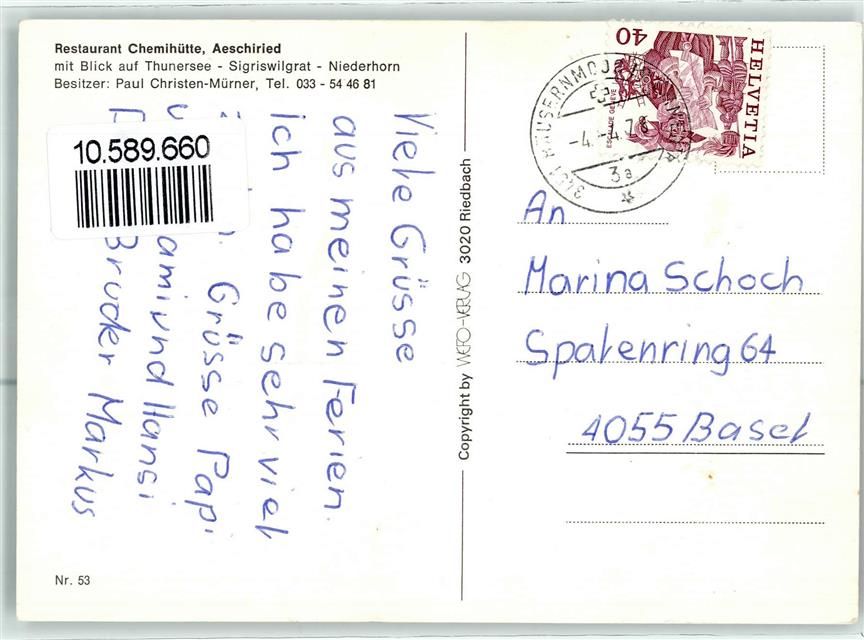 Restaurant Chemihütte, Aeschiried
mit Blick auf Thunersee - Sigriswilgrat - Niederhorn
Besitzer: Paul Christen-Mürner, Tel. 033 - 54 46 81
10.589.660
Viele Grüsse
aus meinen Ferien.
ich habe sehr viel
Grüsse Papi
und Hansi
Bruder Markus
Nr. 53
Copyright by WEFO-VERLAG 3020 Riedbach
HELVETIA
40
-4.-4.78
3a
An
Marina Schoch
Spalenring 64
4055 Basel